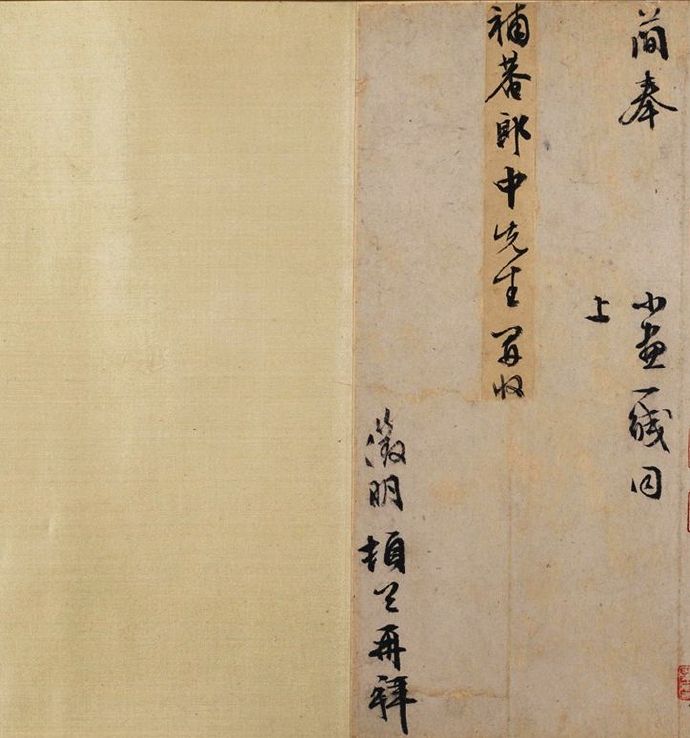 簡奉
小畫一緘同
上
補菴郎中先生 收
徵明頓首再拜